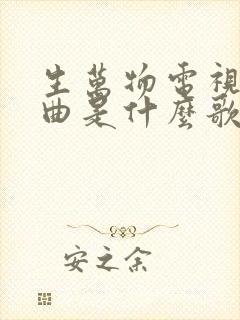 生萬物電視
曲是什麼歌
安之余